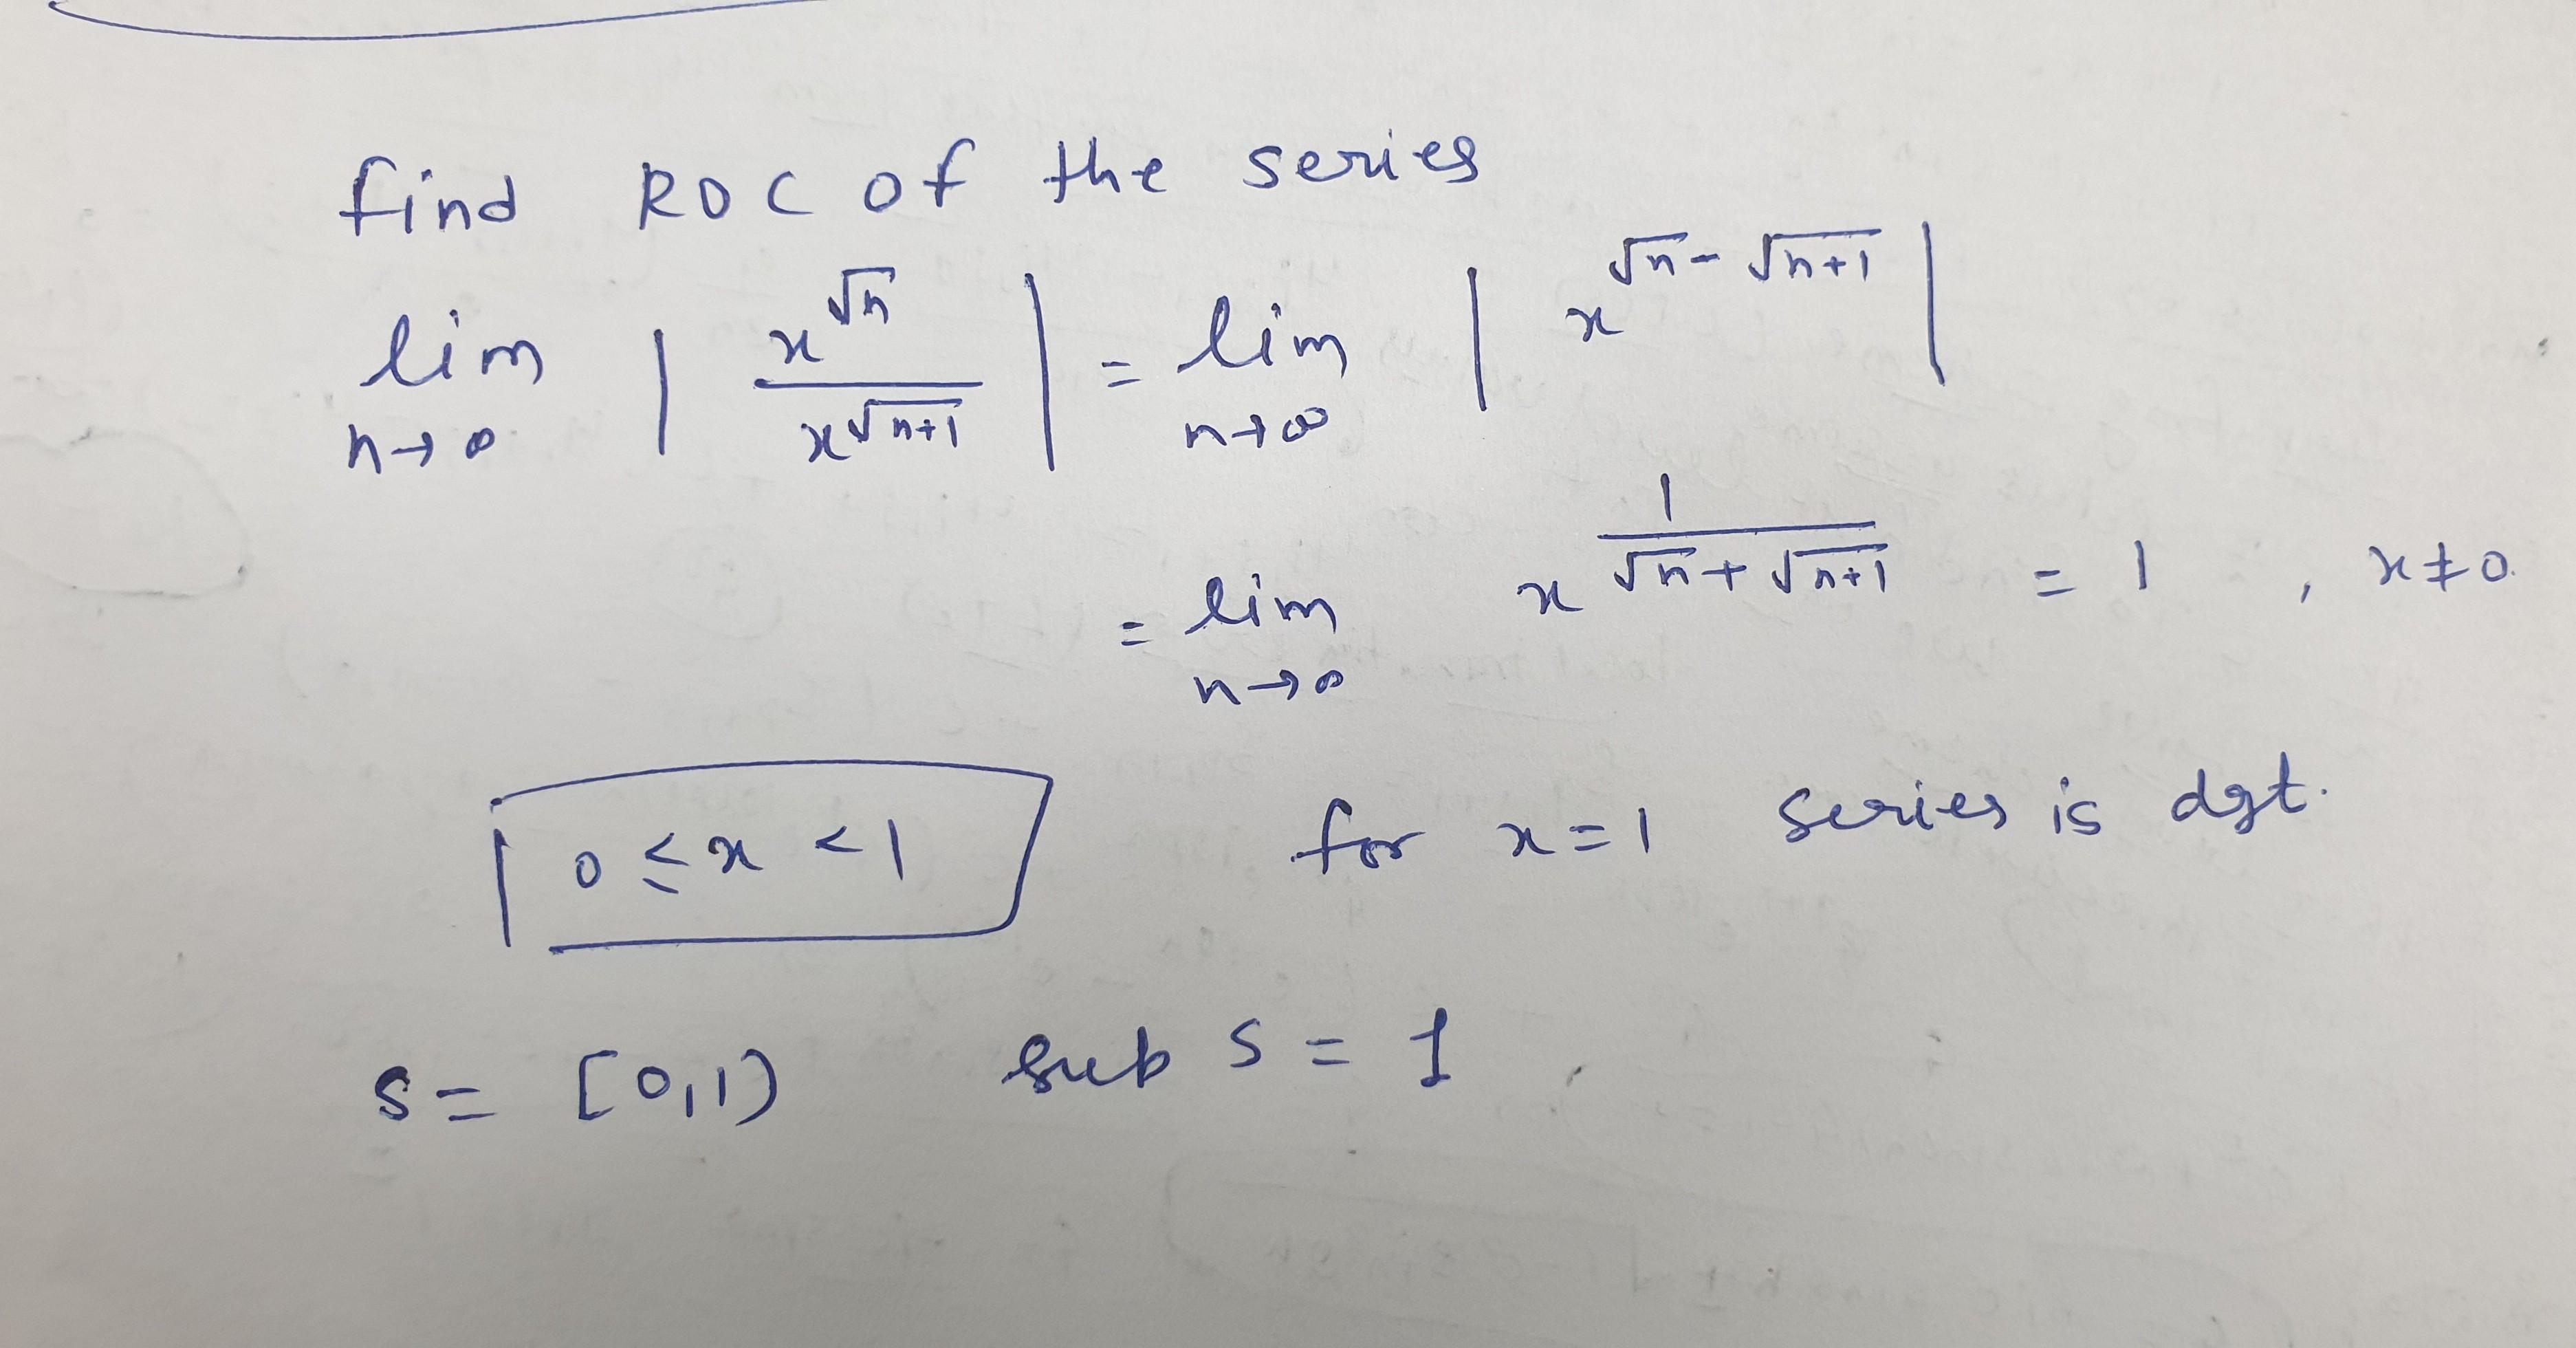 find ROC of the series
lim n→∞ | x^√n / x^√(n+1) | = lim n→∞ | x^(√n - √(n+1)) |
= lim n→∞ x^(1/(√n + √(n+1))) = 1 , x≠0.
0 ≤ x < 1 for x=1 series is dgt.
S = [0,1) sup S = 1